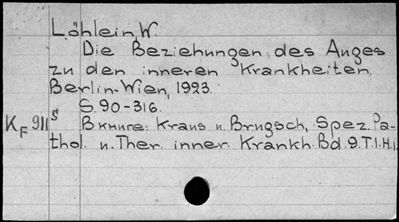 Löhlein, W.
Die Beziehungen des Auges
zu den inneren Krankheiten
Berlin-Wien, 1923.
S 90-316.
KF 911 S В книге: Kraus u. Brugsch, Spez. Pa-
thol. u. Ther. inner. Krankh. Bd. 9. T. I. H. I.